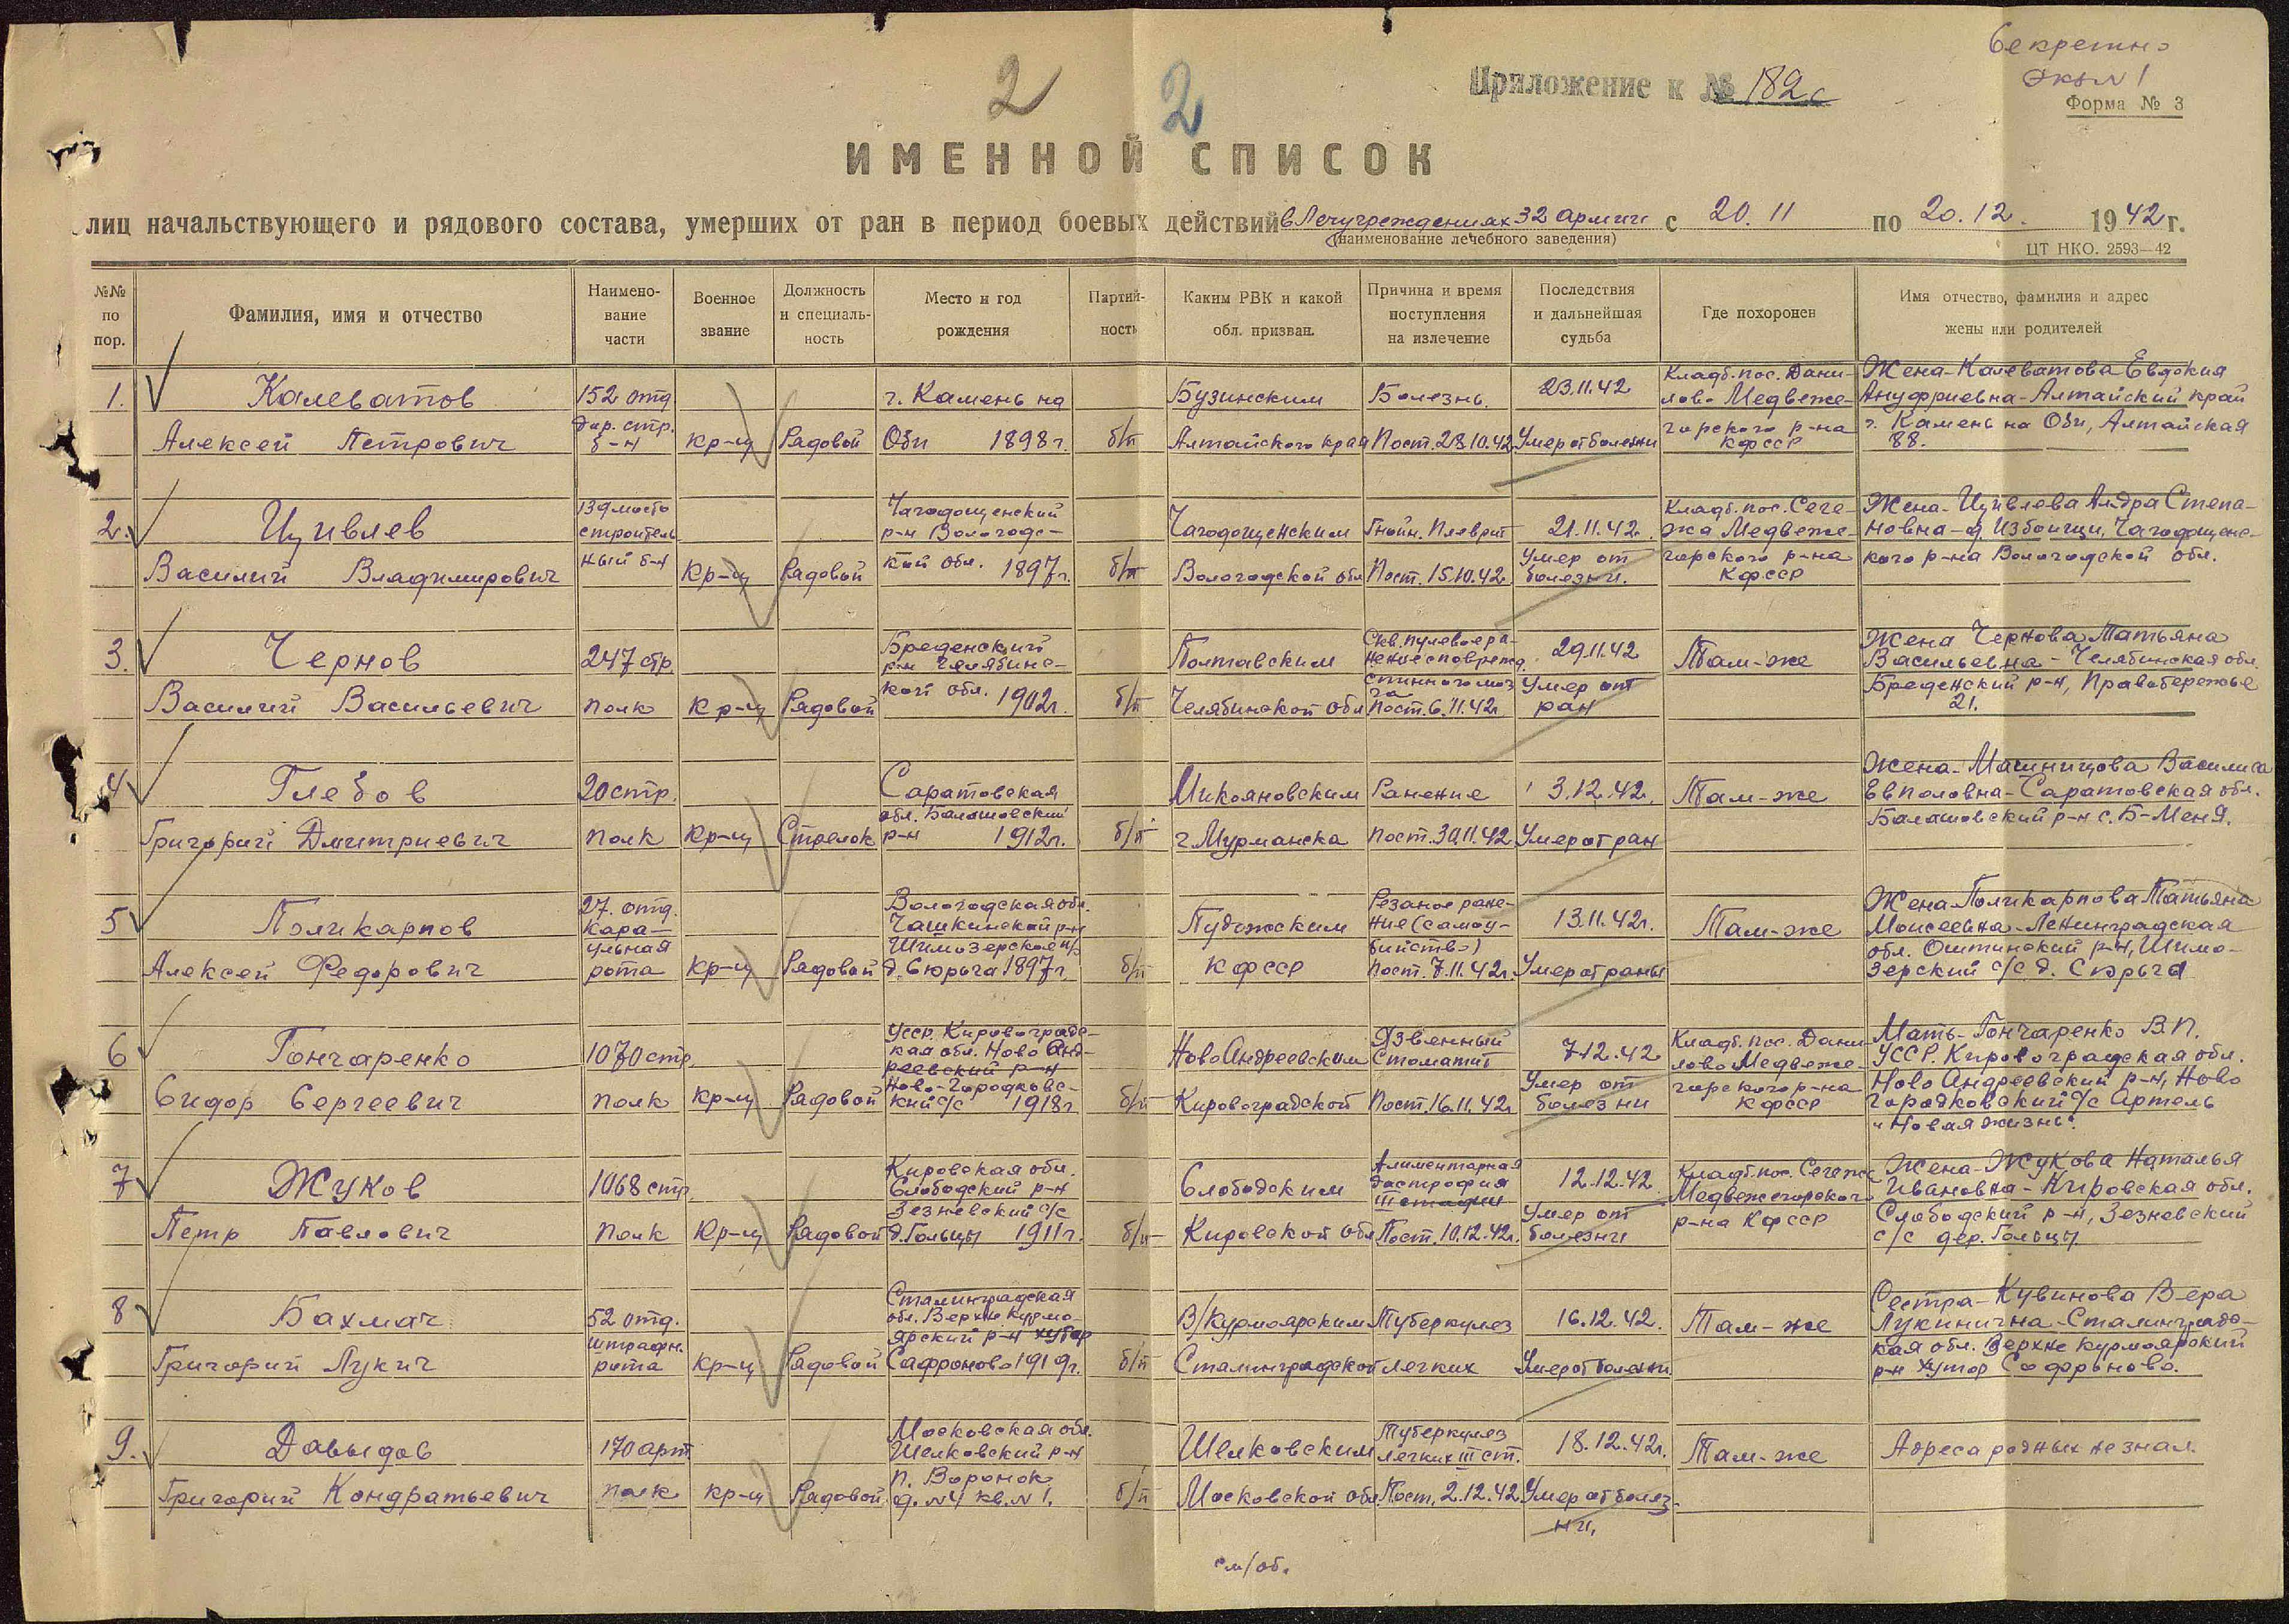 Секретно
экз N 1
Приложение к № 182с
Форма № 3
2 2
ИМЕННОЙ СПИСОК
лиц начальствующего и рядового состава, умерших от ран в период боевых действий в Лечучреждениях 32 армии с 20.11 по 20.12. 1942 г.
(наименование лечебного заведения)
ЦТ НКО. 2593—42
№№ по пор.
Фамилия, имя и отчество
Наимено-
вание
части
Военное
звание
Должность
и специаль-
ность
Место и год
рождения
Партий-
ность
Каким РВК и какой
обл. призван.
Причина и время
поступления
на излечение
Последствия
и дальнейшая
судьба
Где похоронен
Имя отчество, фамилия и адрес
жены или родителей
1.
Калеватов
Алексей Петрович
152 отд
дор. стр.
б-н
кр-ц
Рядовой
г. Камень на
Оби 1898г.
б/п
Бузинским
Алтайского края
Болезнь.
Пост. 28.10.42
23.11.42
Умер от болезни
Кладб. пос. Дани-
лово Медвеже-
горского р-на
КФССР
Жена-Калеватова Евдокия
Ануфриевна-Алтайский край
г. Камень на Оби, Алтайская
88.
2.
Цивлев
Василий Владимирович
139 мосто
строитель
ный б-н
Кр-ц
Рядовой
Чагодощенский
р-н Вологодс-
кой обл. 1897г.
б/п
Чагодощенским
Вологодской обл
Гнойн. Плеврит
Пост. 15.10.42
21.11.42.
Умер от
болезни.
Кладб. пос. Сеге-
жа Медвеже-
горского р-на
КФССР
Жена-Цивлева Ал-дра Степа-
новна-д. Избоищи, Чагодощенс-
кого р-на Вологодской обл.
3.
Чернов
Василий Васильевич
247 стр.
полк
Кр-ц
Рядовой
Бреденский
р-н Челябинс-
кой обл. 1902г.
б/п
Полтавским
Челябинской обл
Скв. пулевое ра-
нение с поврежд.
спинного моз
га
Пост. 6.11.42г
29.11.42
Умер от
ран
Там-же
Жена Чернова Татьяна
Васильевна-Челябинская обл.
Бреденский р-н, Правобережье
21.
4
Глебов
Григорий Дмитриевич
20 стр.
полк
Кр-ц
Стрелок
Саратовская
обл. Балашовский
р-н 1912г.
б/п
Микояновским
г. Мурманска
Ранение
Пост. 30.11.42
3.12.42.
Умер от ран
Там-же
Жена-Машницова Василиса
Евполовна-Саратовская обл.
Балашовский р-н с. Б-Меня.
5
Поликарпов
Алексей Федорович
27. отд.
кара-
ульная
рота
Кр-ц
Рядовой
Вологодская обл.
Чашкинский р-н
Шимозерское с/с
д. Сюрьга 1897г.
б/п
Пудожским
КФССР
Резаное ране-
ние (самоу-
бийство)
Пост. 7.11.42г.
13.11.42г.
Умер от раны
Там-же
Жена-Поликарпова Татьяна
Моисеевна-Ленинградская
обл. Оштинский р-н, Шимо-
зерский с/с д. Сюрьга
6
Гончаренко
Сидор Сергеевич
1070 стр.
полк
Кр-ц
Рядовой
УССР. Кировоградс-
кая обл. Ново Анд-
реевский р-н
Ново-Городковс-
кий с/с 1918г
б/п
Ново Андреевским
Кировоградской
Язвенный
Стоматит
Пост. 16.11.42г
7.12.42
Умер от
болезни
Кладб. пос. Дани-
лово Медвеже-
горского р-на
КФССР
Мать-Гончаренко В.П.
УССР. Кировоградская обл.
Ново Андреевский р-н, Ново
городковский с/с Артель
"Новая жизнь".
7
Жуков
Петр Павлович
1068 стр
полк
Кр-ц
Рядовой
Кировская обл.
Слободский р-н
Зезневский с/с
д. Гольцы 1911г.
б/п
Слободским
Кировской обл
Алиментарная
дистрофия
III стадии
Пост. 10.12.42г.
12.12.42
Умер от
болезни
Кладб. пос. Сегежа
Медвежегорского
р-на КФССР
Жена-Жукова Наталья
Ивановна-Кировская обл.
Слободский р-н, Зезневский
с/с дер. Гольцы.
8
Бахмач
Григорий Лукич
52 отд.
штрафн.
рота
Кр-ц
Рядовой
Сталинградская
обл. Верхне Курмо-
ярский р-н хутор
Сафроново 1919г.
б/п
В/Курмоярским
Сталинградской
Туберкулез
легких
16.12.42.
Умер от болезни.
Там-же
Сестра-Кувинова Вера
Лукинична-Сталинградс-
кая обл. Верхне Курмоярский
р-н хутор Софроново.
9.
Давыдов
Григорий Кондратьевич
170 арт.
полк
кр-ц
Рядовой
Московская обл.
Щелковский р-н
п. Воронок
д. N4 кв. N1.
б/п
Щелковским
Московской обл
Туберкулез
легких III ст.
Пост. 2.12.42
18.12.42г.
Умер от болез-
ни.
Там-же
Адреса родных не знал.
см/об.